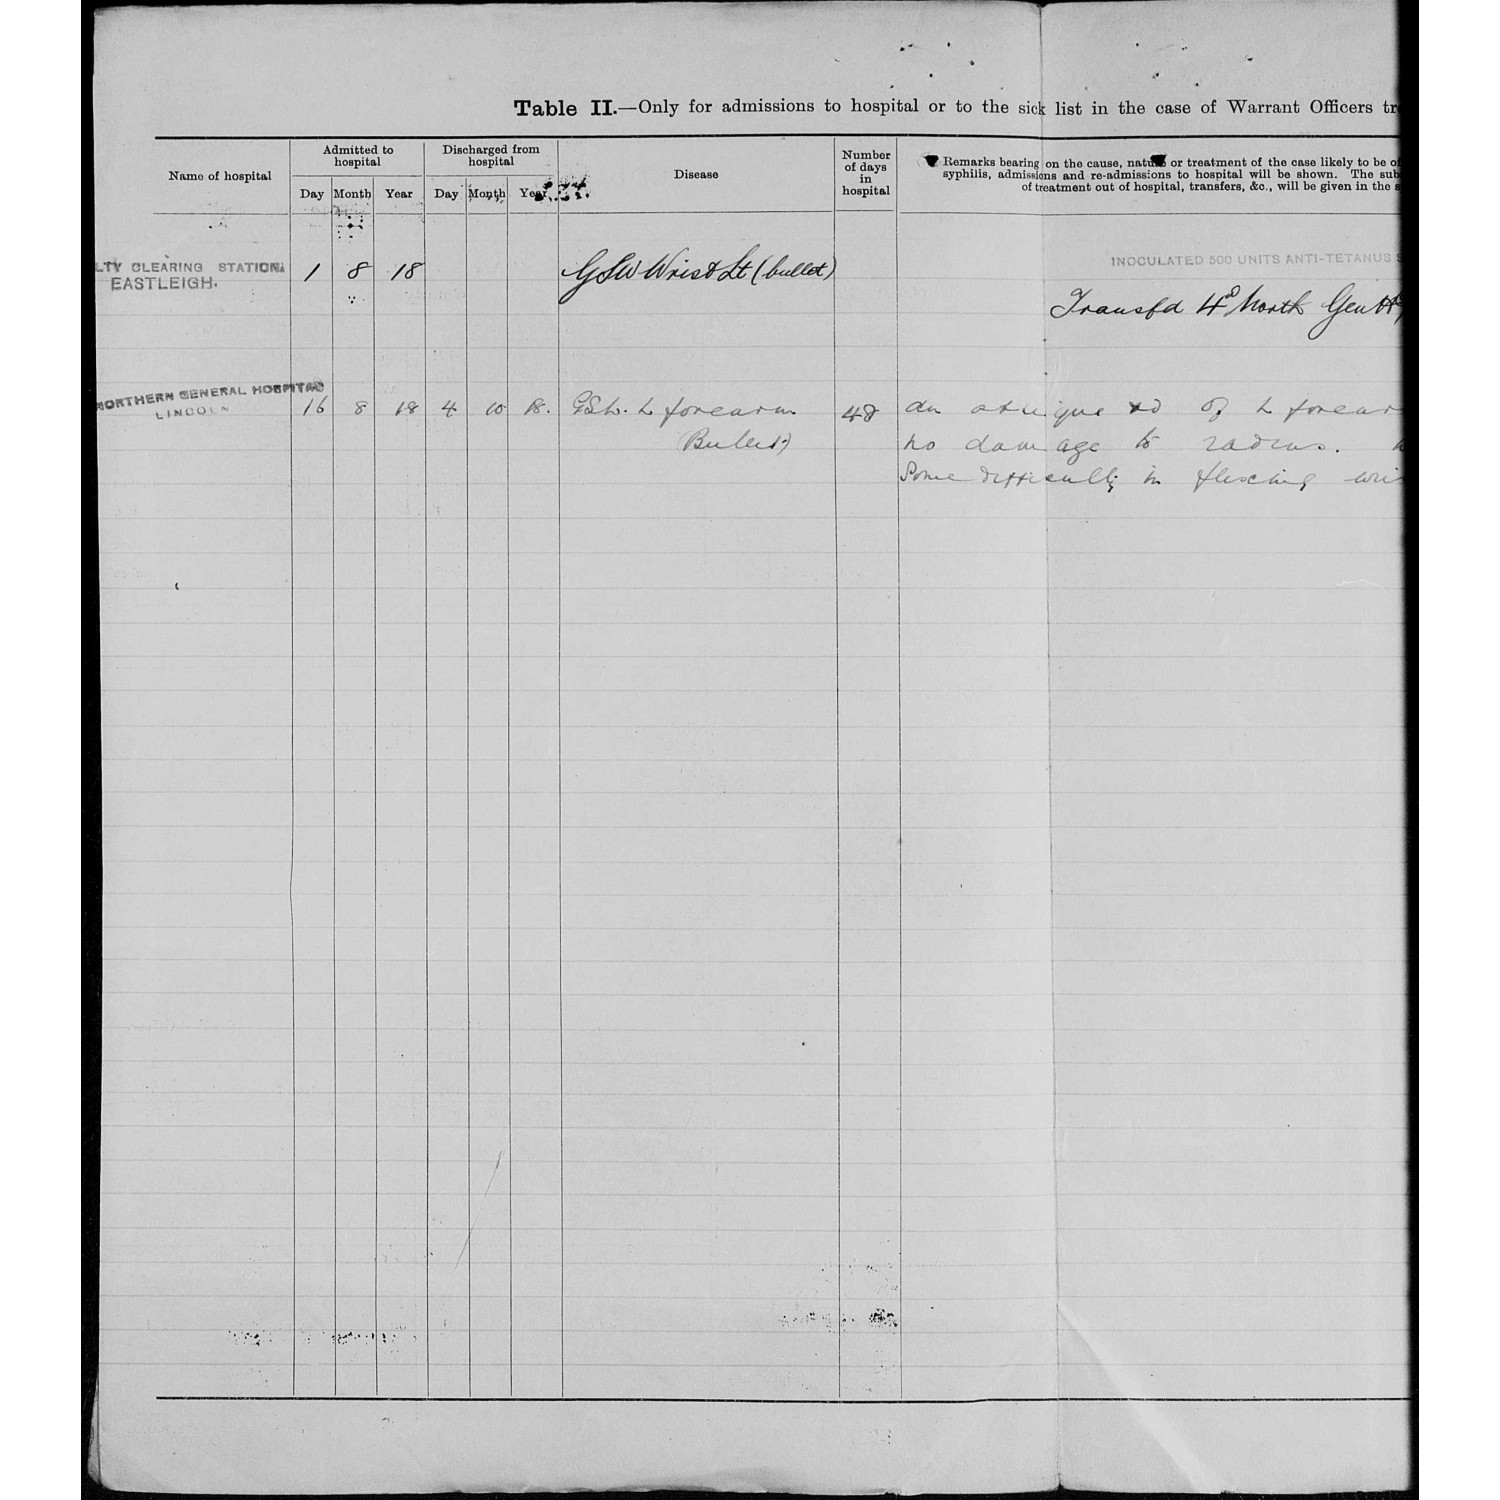 Table II.—Only for admissions to hospital or to the sick list in the case of Warrant Officers tr
Name of hospital
Admitted to hospital
Discharged from hospital
Disease
Number of days in hospital
Remarks bearing on the cause, nature or treatment of the case likely to be of
syphilis, admissions and re-admissions to hospital will be shown. The sub
of treatment out of hospital, transfers, &c., will be given in the s
Day Month Year Day Month Year
LTY CLEARING STATION.
EASTLEIGH.
1 8 18 GSW Wrist Lt (bullet)
INOCULATED 500 UNITS ANTI-TETANUS S
Transfd 4 North Gen
NORTHERN GENERAL HOSPITAL
LINCOLN
16 8 18 4 10 18. L forearm 48 An oblique of L forear
(Bullet)
no damage to radius.
Some difficulty in flexing wris